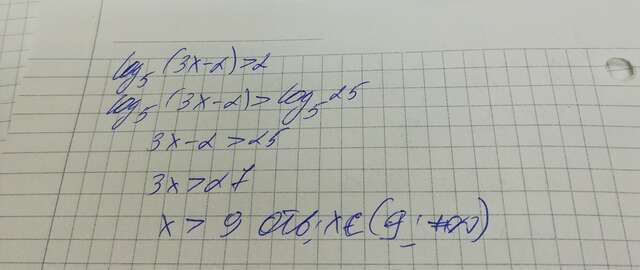 log₅ (3x-2)>2
log₅ (3x-2)>log₅ 25
3x-2>25
3x>27
x>9 Отв: x∈(9; +∞)